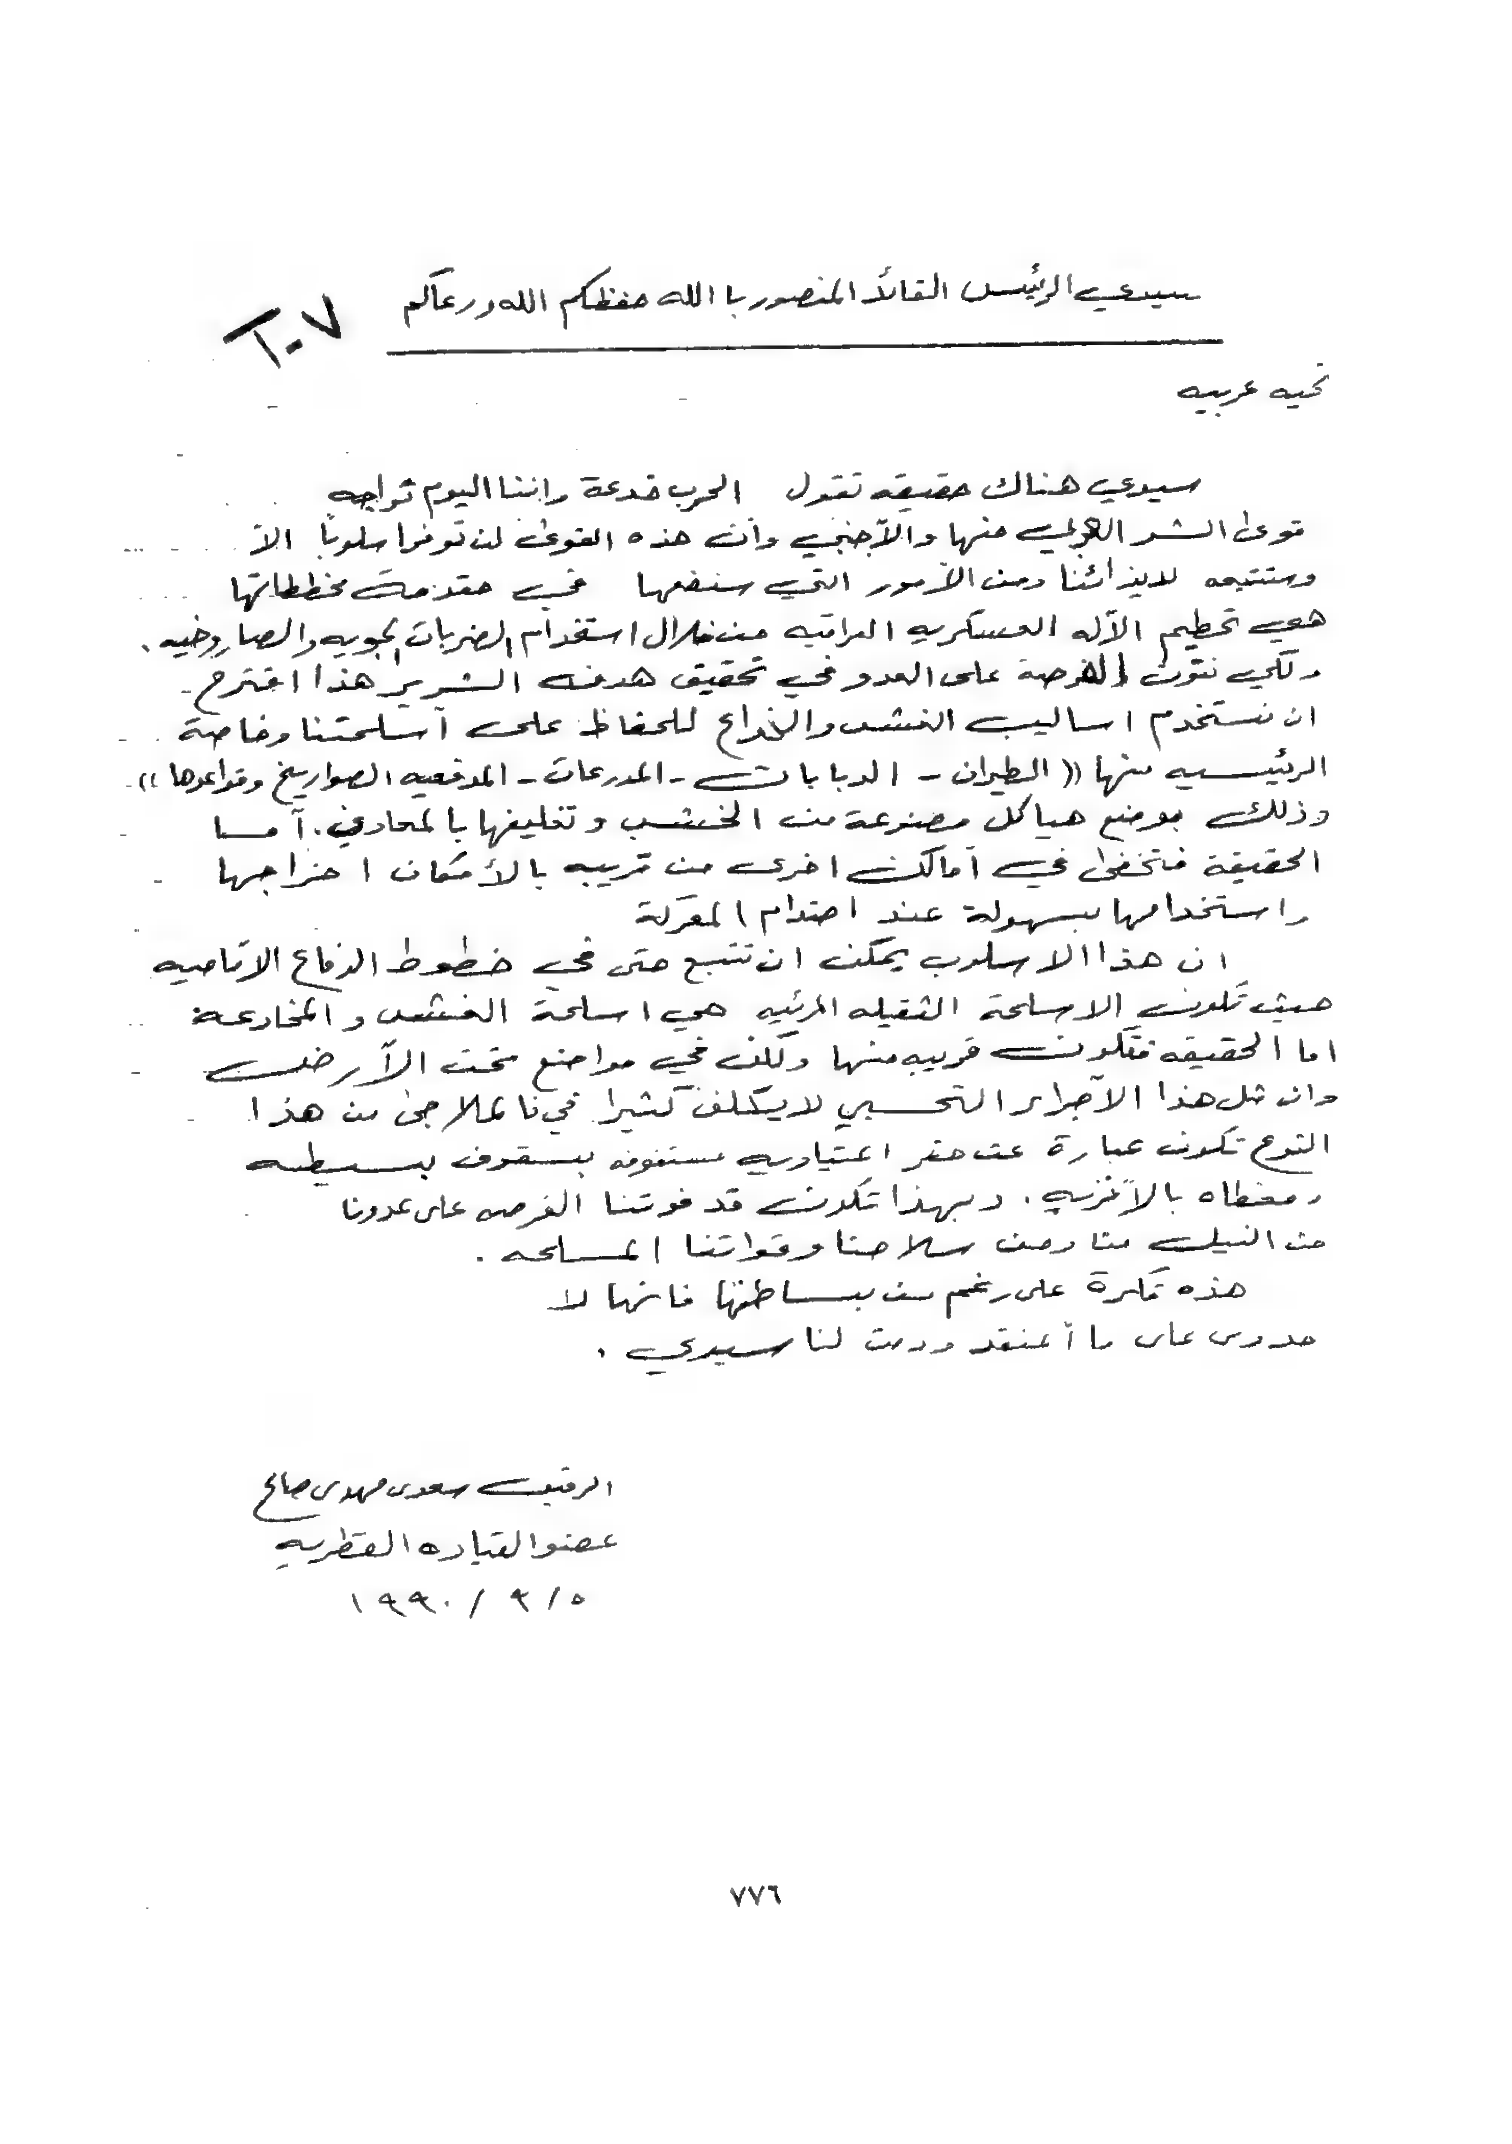 سيدي الرئيس القائد المنصور بالله حفظكم الله ورعاكم
٦٠٧
تحيه عربيه
سيدي هناك حقيقه تقول الحرب خدعة واننا اليوم نواجه
قوى الشر العربي منها والأجنبي وأن هذه القوى لن توفر اسلوباً الا
وستتبعه لايذائنا ومن الأمور التي ستضعها في مقدمة مخططاتها
هي تحطيم الآله العسكريه العراقيه من خلال استخدام الضربات الجويه والصاروخيه .
ولكي نفوت الفرصة على العدو في تحقيق هدفه الشرير هذا اقترح
ان نستخدم اساليب الغش والخداع للحفاظ على أسلحتنا وخاصة
الرئيسيه منها (( الطيران - الدبابات - المدرعات - المدفعيه الصواريخ وقواعدها ))
وذلك بوضع هياكل مصنوعة من الخشب وتغليفها بالمعادن . أما
الحقيقة فتخفى في أماكن اخرى من قريبه بالأمكان اخراجها
واستخدامها بسهولة عند احتدام المعركة
ان هذا الاسلوب يمكن ان تتبع حتى في خطوط الدفاع الاماميه
حيث تكون الاسلحة الثقيله المرئيه هي اسلحة الغش والمخادعة
اما الحقيقه فتكون قريبه منها ولكن في مواضع تحت الأرض
وان مثل هذا الأجراء التحسبي لايكلف كثيرا في ملاجئ من هذا
النوع تكون عبارة عن حفر اعتياديه مسقوفه بسقوف بسيطه
ومغطاه بالأتربه . وبهذا تكون قد فوتنا الفرصه على عدونا
من النيل منا ومن سلاحنا وقواتنا المسلحه .
هذه فكرة على رغم من بساطتها فانها لا
على ما أعتقد ودمت لنا سيدي .
الرفيق سعدي مهدي صالح
عضو القياده القطريه
٥ / ٩ / ١٩٩٠
٧٧٦